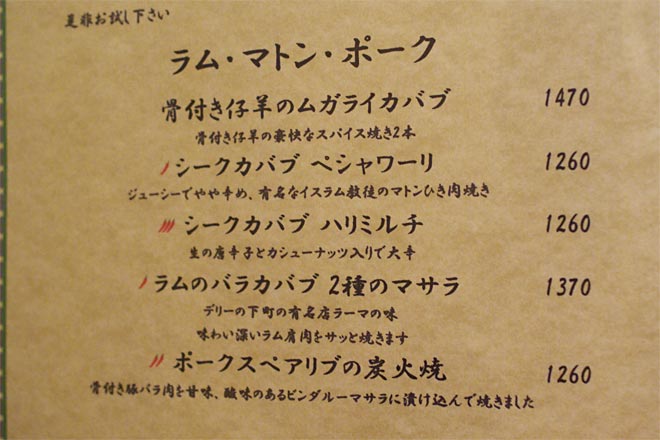 是非お試し下さい
ラム・マトン・ポーク
骨付き仔羊のムガライカバブ 1470
骨付き仔羊の豪快なスパイス焼き2本
シークカバブ ペシャワーリ 1260
ジューシーでやや辛め、有名なイスラム教徒のマトンひき肉焼き
シークカバブ ハリミルチ 1260
生の唐辛子とカシューナッツ入りで大辛
ラムのバラカバブ 2種のマサラ 1370
デリーの下町の有名店ラーマの味
味わい深いラム肩肉をサッと焼きます
ポークスペアリブの炭火焼 1260
骨付き豚バラ肉を甘味、酸味のあるビンダルーマサラに漬け込んで焼きました